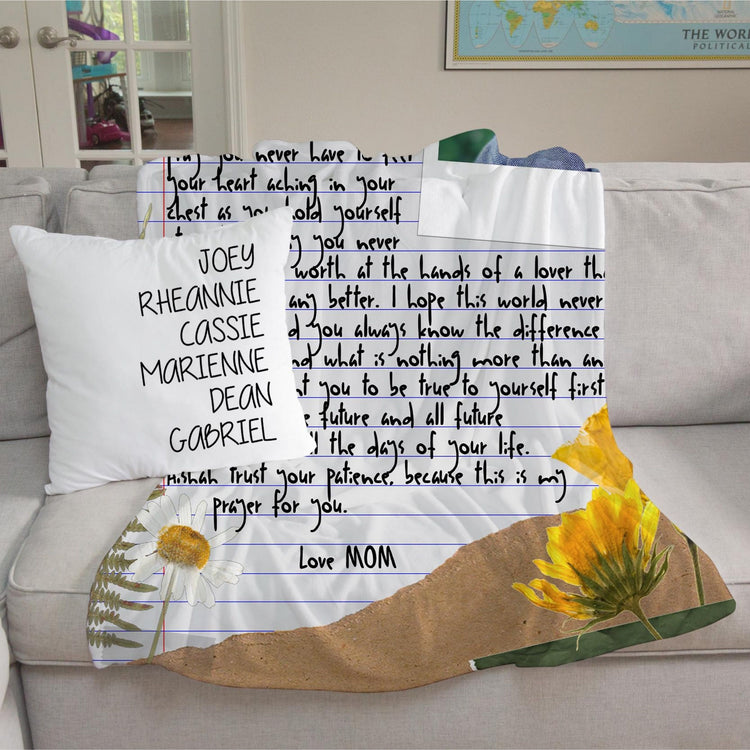 THE WOR
POLITICAL
you never have to
your heart aching in your
chest as you hold yourself
you never
worth at the hands of a lover th
any better. I hope this world never
you always know the difference
what is nothing more than an
you to be true to yourself first
future and all future
the days of your life.
Trust your patience, because this is my
prayer for you.
Love MOM
JOEY
RHEANNIE
CASSIE
MARIENNE
DEAN
GABRIEL